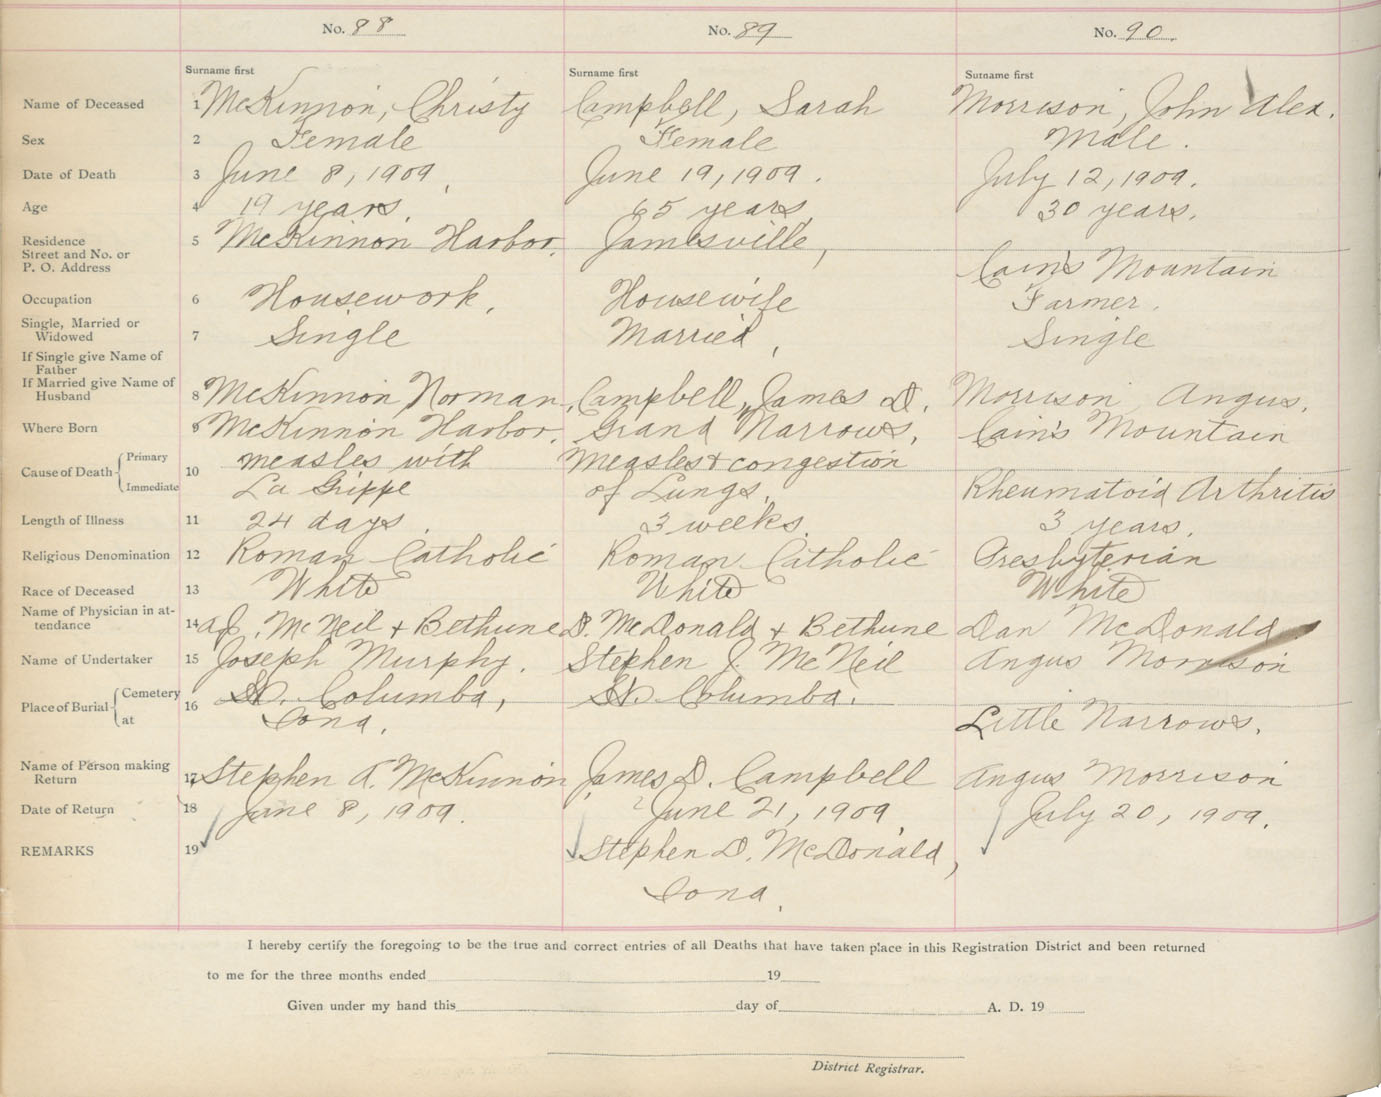 No. 88 No. 89 No. 90.
Surname first Surname first Surname first
Name of Deceased 1 McKinnon, Christy Campbell, Sarah Morrison, John Alex.
Sex 2 Female Female Male.
Date of Death 3 June 8, 1909, June 19, 1909. July 12, 1909.
Age 4 19 years. 65 years, 30 years.
Residence 5 McKinnon Harbor. Jamesville,
Street and No. or
P. O. Address Cain's Mountain
Occupation 6 Housework. Housewife Farmer.
Single, Married or
Widowed 7 Single Married, Single
If Single give Name of
Father
If Married give Name of
Husband 8 McKinnon Norman. Campbell, James D. Morrison Angus.
Where Born 9 McKinnon Harbor. Grand Narrows. Cain's Mountain
Cause of Death Primary measles with Measles & congestion
10
Immediate La Grippe of Lungs. Rheumatoid Arthritis
Length of Illness 11 24 days. 3 weeks. 3 years.
Religious Denomination 12 Roman Catholic Roman Catholic Presbyterian
Race of Deceased 13 White White White
Name of Physician in at-
tendance 14 A.J. McNeil & Bethune D. McDonald & Bethune Dan McDonald
Name of Undertaker 15 Joseph Murphy. Stephen J. McNeil Angus Morrison
Place of Burial Cemetery 16 St. Columba, St. Columba.
at Iona. Little Narrows.
Name of Person making
Return 17 Stephen A. McKinnon James D. Campbell Angus Morrison
Date of Return 18 June 8, 1909. June 21, 1909 July 20, 1909.
REMARKS 19 Stephen D. McDonald,
Iona.
I hereby certify the foregoing to be the true and correct entries of all Deaths that have taken place in this Registration District and been returned
to me for the three months ended 19
Given under my hand this day of A. D. 19
District Registrar.